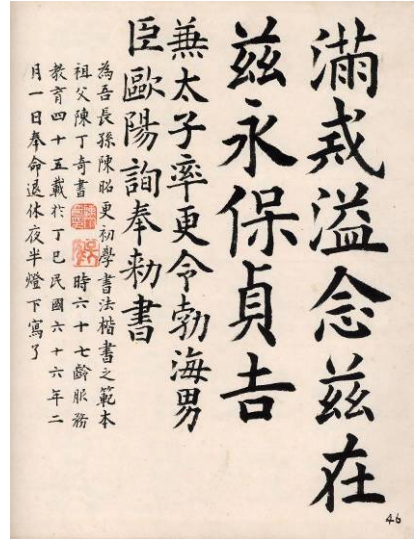 滿戒溢念茲在
茲永保貞吉
兼太子率更令勃海男
臣歐陽詢奉勅書
為吾長孫陳昭更初學書法楷書之範本
祖父陳丁奇書 時六十七齡服務
教育四十五載於丁巳民國六十六年二
月一日奉命退休夜半燈下寫了
46